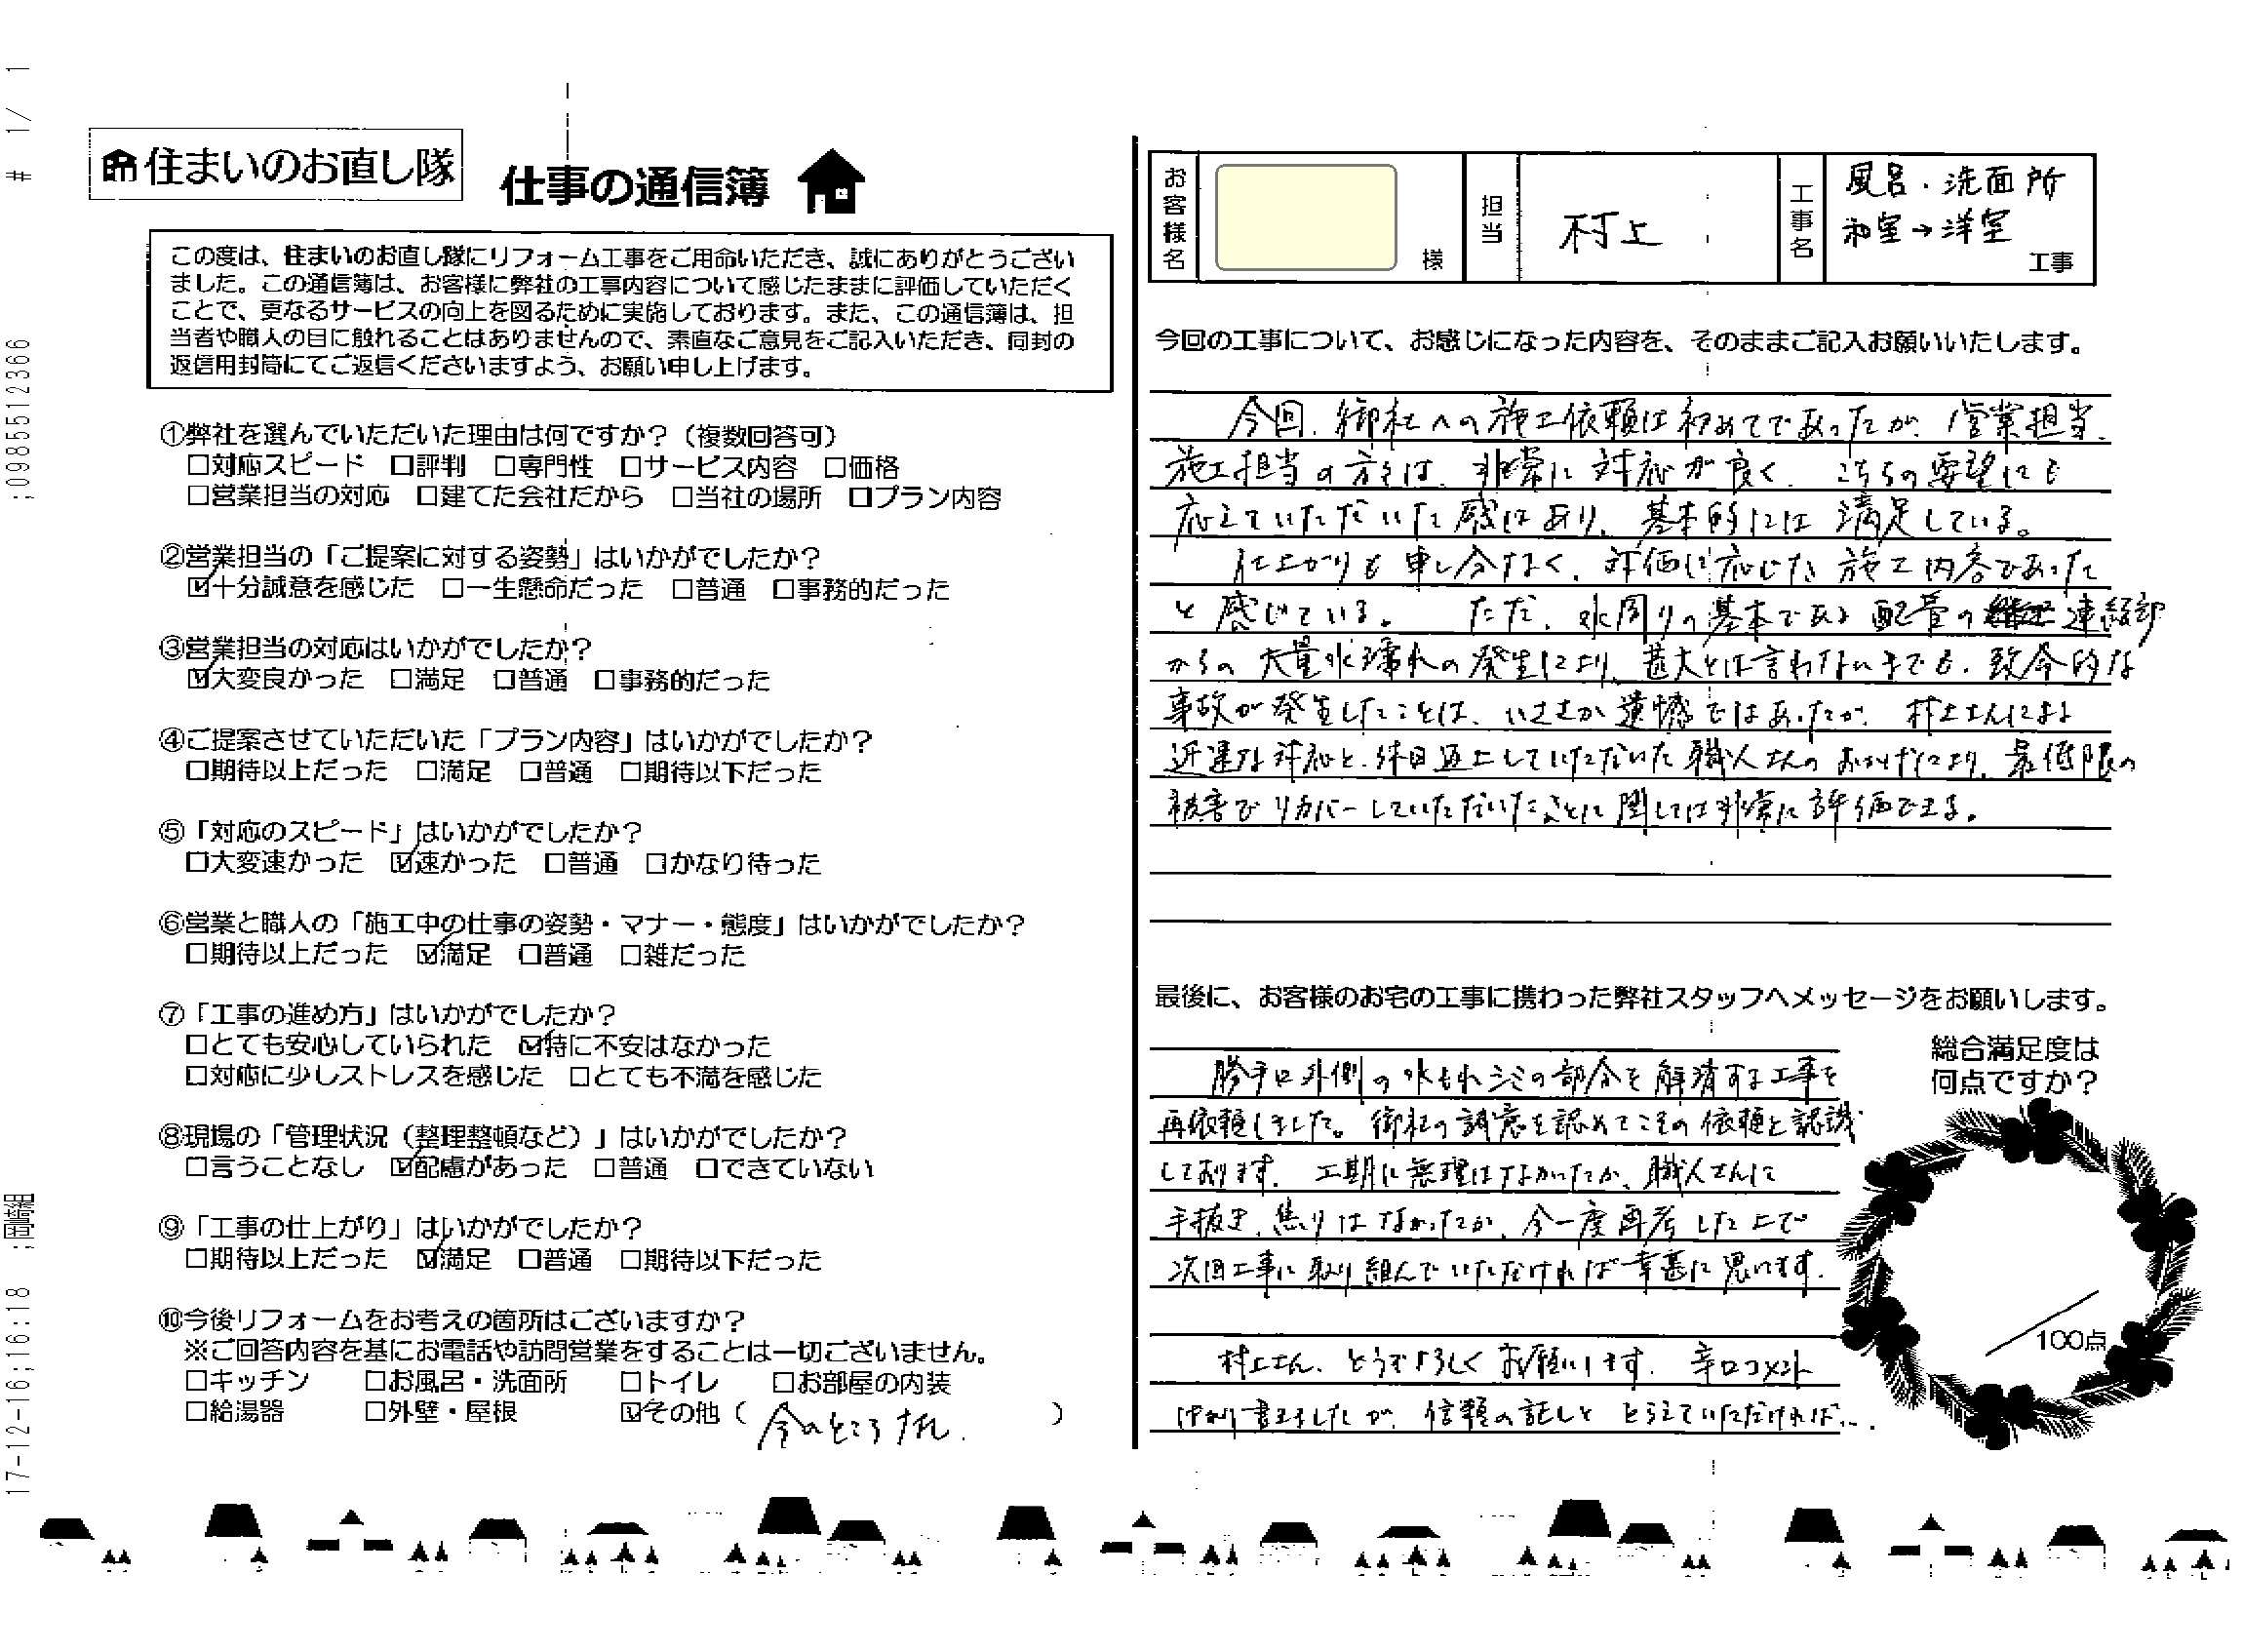 # 1/ 1
;0985512366
;岡崎組
17-12-16;16:18
住まいのお直し隊
仕事の通信簿
この度は、住まいのお直し隊にリフォーム工事をご用命いただき、誠にありがとうござい
ました。この通信簿は、お客様に弊社の工事内容について感じたままに評価していただく
ことで、更なるサービスの向上を図るために実施しております。また、この通信簿は、担
当者や職人の目に触れることはありませんので、素直なご意見をご記入いただき、同封の
返信用封筒にてご返信くださいますよう、お願い申し上げます。
①弊社を選んでいただいた理由は何ですか？（複数回答可）
□対応スピード □評判 □専門性 □サービス内容 □価格
□営業担当の対応 □建てた会社だから □当社の場所 □プラン内容
②営業担当の「ご提案に対する姿勢」はいかがでしたか？
☑十分誠意を感じた □一生懸命だった □普通 □事務的だった
③営業担当の対応はいかがでしたか？
☑大変良かった □満足 □普通 □事務的だった
④ご提案させていただいた「プラン内容」はいかがでしたか？
□期待以上だった □満足 □普通 □期待以下だった
⑤「対応のスピード」はいかがでしたか？
□大変速かった ☑速かった □普通 □かなり待った
⑥営業と職人の「施工中の仕事の姿勢・マナー・態度」はいかがでしたか？
□期待以上だった ☑満足 □普通 □雑だった
⑦「工事の進め方」はいかがでしたか？
□とても安心していられた ☑特に不安はなかった
□対応に少しストレスを感じた □とても不満を感じた
⑧現場の「管理状況（整理整頓など）」はいかがでしたか？
□言うことなし ☑配慮があった □普通 □できていない
⑨「工事の仕上がり」はいかがでしたか？
□期待以上だった ☑満足 □普通 □期待以下だった
⑩今後リフォームをお考えの箇所はございますか？
※ご回答内容を基にお電話や訪問営業をすることは一切ございません。
□キッチン □お風呂・洗面所 □トイレ □お部屋の内装
□給湯器 □外壁・屋根 ☑その他（今のところナシ.）
お客様名 様 担当 村上 工事名 風呂・洗面所
和室→洋室
工事
今回の工事について、お感じになった内容を、そのままご記入お願いいたします。
今回、御社への施工依頼は初めてであったが、営業担当、
施工担当の方々は、非常に対応が良く、こちらの要望にも
応えていただいた感はあり、基本的には満足している。
仕上がりも申し分なく、評価に応じた施工内容であった
と感じている。 ただ、水周りの基本である配管の連結部
からの大量水漏れの発生により、甚大とは言わないまでも、致命的な
事故が発生したことは、いささか遺憾ではあったが、村上さんによる
迅速な対応と、休日返上していただいた職人さんのおかげにより、最低限の
被害でリカバーしていただいたことに関しては非常に評価できる。
最後に、お客様のお宅の工事に携わった弊社スタッフへメッセージをお願いします。
勝手口外側の水もれシミの部分を解消する工事を
再依頼しました。御社の誠意を認めてこその依頼と認識
しております。 工期に無理はなかったか、職人さんに
手抜き、焦りはなかったか、今一度再考した上で
次回工事に取り組んでいただければ幸甚に思います.
村上さん、どうぞよろしくお願いします. 辛口コメント
ばかり書きましたが、信頼の証しと とらえていただければ….
総合満足度は
何点ですか？
／100点